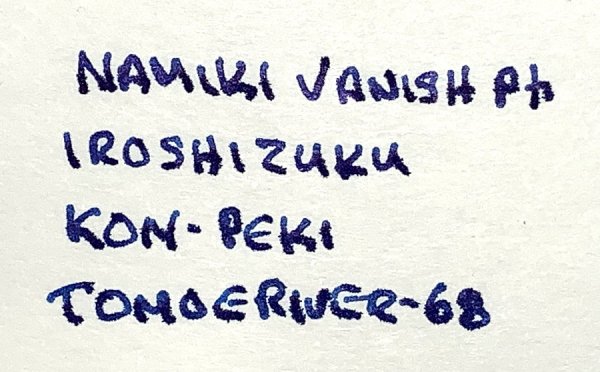 NAMIKI VANISH Ph
IROSHIZUKU
KON-PEKI
TOMOERIVER-68